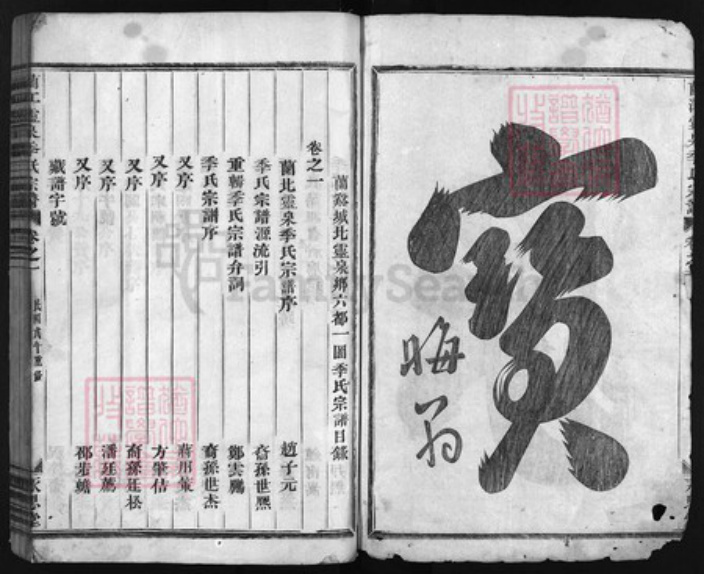 寶
晦翁
蘭谿城北靈泉鄉六都一圖季氏宗譜目錄
卷之一
蘭北靈泉季氏宗譜序 趙子元
季氏宗譜源流引 裔孫世熙
重修季氏宗譜弁詞 鄭雲鵬
季氏宗譜序 裔孫世杰
又序 蔣用
又序 方肇
又序 裔孫廷松
又序 潘廷
又序
藏譜字號
季氏宗譜 卷之一
FamilySearch